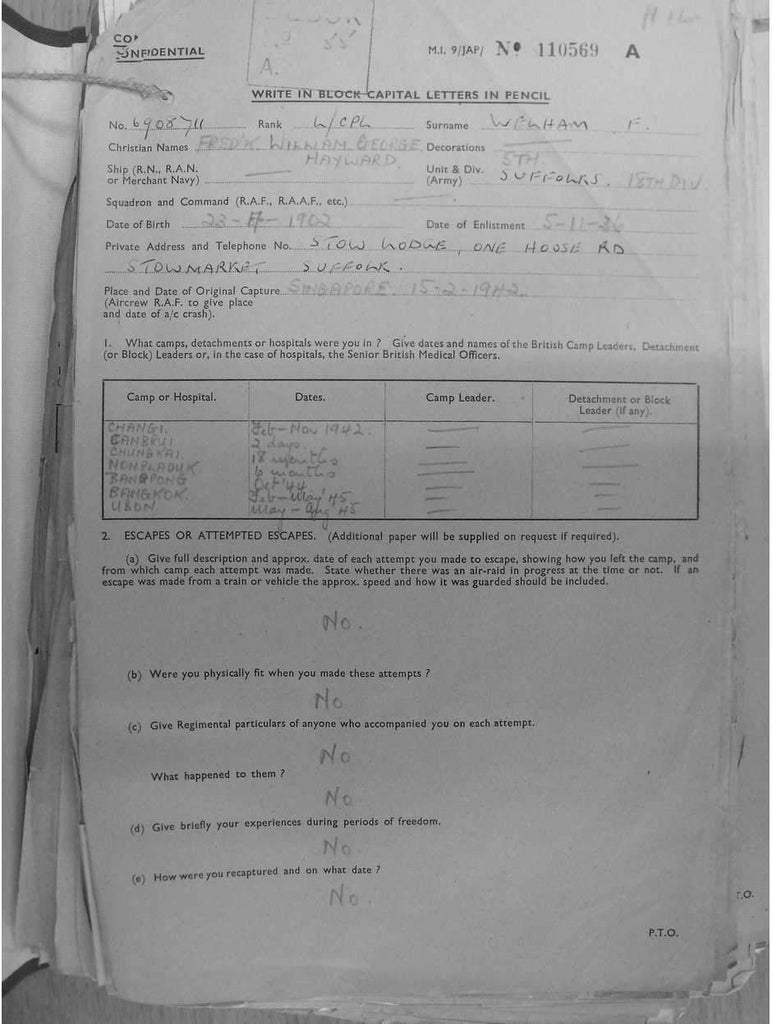 CONFIDENTIAL
A.
M.I. 9/JAP/ Nº 110569 A
WRITE IN BLOCK CAPITAL LETTERS IN PENCIL
No. Rank L/CPL Surname WELHAM F.
Christian Names FRED'K WILLIAM GEORGE HAYWARD Decorations
Ship (R.N., R.A.N. or Merchant Navy) Unit & Div. (Army) 5TH. SUFFOLKS. 18TH DIV
Squadron and Command (R.A.F., R.A.A.F., etc.)
Date of Birth Date of Enlistment
Private Address and Telephone No. STOW LODGE, ONE HOUSE RD
STOWMARKET SUFFOLK.
Place and Date of Original Capture SINGAPORE. 15-2-1942.
(Aircrew R.A.F. to give place
and date of a/c crash).
1. What camps, detachments or hospitals were you in ? Give dates and names of the British Camp Leaders, Detachment
(or Block) Leaders or, in the case of hospitals, the Senior British Medical Officers.
Camp or Hospital. Dates. Camp Leader. Detachment or Block Leader (if any).
CHANGI. Feb-Nov 1942.
2 days.
CHUNGKAI. 18 months
NONPLADUK 6 months
BANGPONG Oct '44
BANGKOK. Feb-May '45
UBON May - Aug '45
2. ESCAPES OR ATTEMPTED ESCAPES. (Additional paper will be supplied on request if required).
(a) Give full description and approx. date of each attempt you made to escape, showing how you left the camp, and
from which camp each attempt was made. State whether there was an air-raid in progress at the time or not. If an
escape was made from a train or vehicle the approx. speed and how it was guarded should be included.
No.
(b) Were you physically fit when you made these attempts ?
No
(c) Give Regimental particulars of anyone who accompanied you on each attempt.
No
What happened to them ?
No
(d) Give briefly your experiences during periods of freedom.
No.
(e) How were you recaptured and on what date ?
No.
P.T.O.